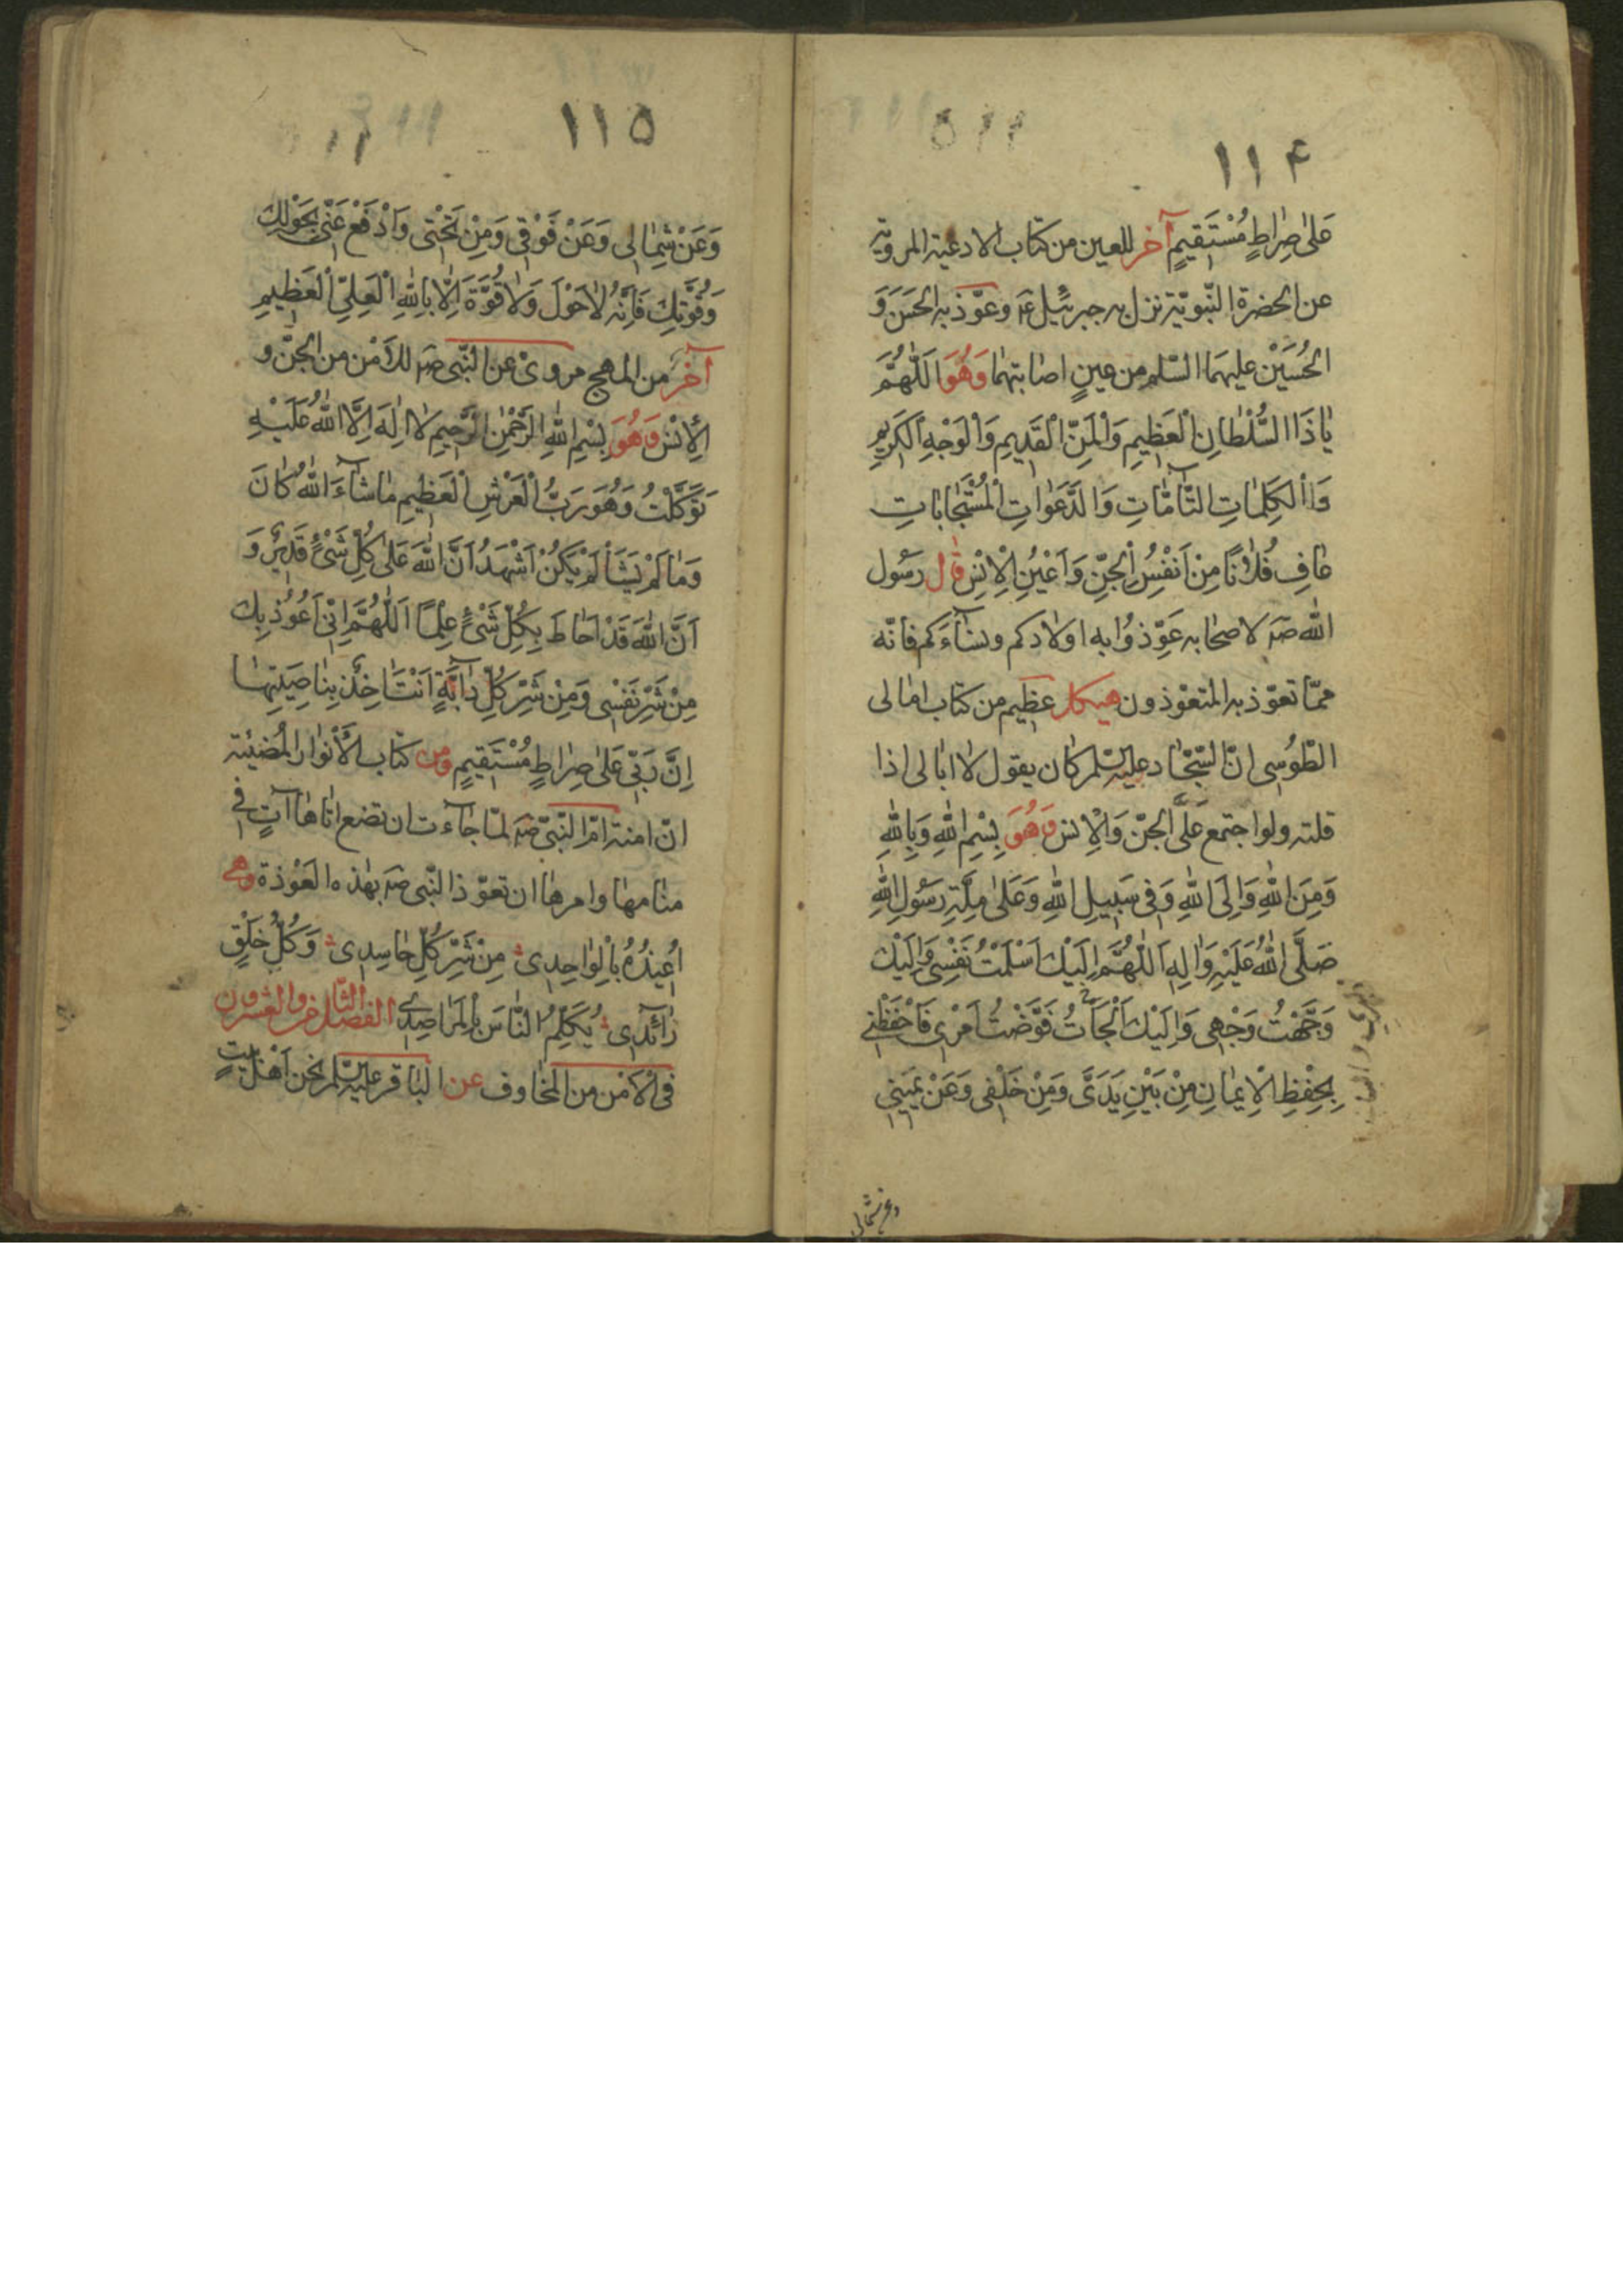 ١١۴
عَلىٰ صِرٰاطٍ مُسْتَقيمٍ آخر للعين من كتاب الادعية المروية
عن الحضرة النّبويّة نزل به جبرئيل عم وعوّذ به الحَسَنَ وَ
الحُسَيْن عليهمَا السّلم من عينٍ اصابتهما وَهُوَ اَللّٰهُمَّ
يٰا ذَا السُّلْطٰانِ الْعَظِيمِ وَالْمَنِّ الْقَدِيمِ وَالْوَجْهِ الْكَرِيمِ
وَالْكَلِمٰاتِ التّٰآمّٰاتِ وَالدَّعَوٰاتِ الْمُسْتَجٰابٰاتِ
عٰافِ فُلٰانًا مِنْ اَنْفُسِ الْجِنِّ وَاَعْيُنِ الْاِنْسِ قٰال رسُول
اللّٰه صم لاصحابه عَوِّذوُا به اولادكم ونسٰآءَكم فانّه
ممّا تعوّذ به المتعوّذون هيكل عظيم من كتاب امٰالى
الطّوُسى انّ السّجّٰاد عليه السّلم كٰان يقول لٰا ابٰالى اذا
قلته ولو اجتمع عَلَىَّ الجنّ وَالْاِنس وَهُوَ بِسْمِ اللّٰهِ وَبِاللّٰهِ
وَمِنَ اللّٰهِ وَاِلَى اللّٰهِ وَفى سَبِيلِ اللّٰهِ وَعَلىٰ مِلَّةِ رَسُولِ اللّٰهِ
صَلَّى اللّٰهُ عَلَيْهِ وَاٰلِهِ اَللّٰهُمَّ اِلَيْكَ اَسْلَمْتُ نَفْسِى وَاِلَيْكَ
وَجَّهْتُ وَجْهِى وَاِلَيْكَ اَلْجَاْتُ فَوَّضْتُ اَمْرِى فَاحْفَظْنِى
بِحِفْظِ الْاِيمٰانِ مِنْ بَيْنِ يَدَىَّ وَمِنْ خَلْفِى وَعَنْ يَمِينِى
وعن شمالى
١١۵
وَعَنْ شِمٰالِى وَعَنْ فَوْقِى وَمِنْ تَحْتِى وَادْفَعْ عَنِّى بِحَوْلِكَ
وَقُوَّتِكَ فَاِنَّهُ لٰا حَوْلَ وَلٰا قُوَّةَ اِلّٰا بِاللّٰهِ الْعَلِىِّ الْعَظِيمِ
آخَر من المهج مروىّ عن النّبى صم للأمْن من الجنّ و
الْاِنْس وَهُوَ بِسْمِ اللّٰهِ الرَّحْمٰنِ الرَّحِيمِ لٰا اِلٰهَ اِلَّا اللّٰهُ عَلَيْهِ
تَوَكَّلْتُ وَهُوَ رَبُّ الْعَرْشِ الْعَظِيمِ مٰا شٰآءَ اللّٰهُ كٰانَ
وَمٰا لَمْ يَشَأْ لَمْ يَكُنْ اَشْهَدُ اَنَّ اللّٰهَ عَلىٰ كُلِّ شَىْءٍ قَدِيرٌ وَ
اَنَّ اللّٰهَ قَدْ اَحٰاطَ بِكُلِّ شَىْءٍ عِلْمًا اَللّٰهُمَّ اِنِّى اَعُوُذُ بِكَ
مِنْ شَرِّ نَفْسِى وَمِنْ شَرِّ كُلِّ دٰآبَّةٍ اَنْتَ اٰخِذٌ بِنٰاصِيَتِهٰا
اِنَّ رَبِّى عَلىٰ صِرٰاطٍ مُسْتَقِيمٍ ومن كتاب الأَنْوٰار المُضيئة
انّ امنة امّ النّبىّ صم لمّا جٰآءت ان تضع اتٰاهٰا آتٍ فى
منٰامهٰا وامرهٰا ان تعوّذ النّبى صم بهٰذه العَوْذة وهى
اُعِيذُهُ بِالْوٰاحِدِى مِنْ شَرِّ كُلِّ حٰاسِدِى وَكُلِّ خَلْقٍ
زٰائِدِى يُكَلِّمُ النّٰاسَ بِالْمَرٰاصِدِى الفصل الثّالث والعشرون
فى الْاَمْن من المخٰاوف عن البٰاقر عليه السّلم نحن اَهْل بيتٍ